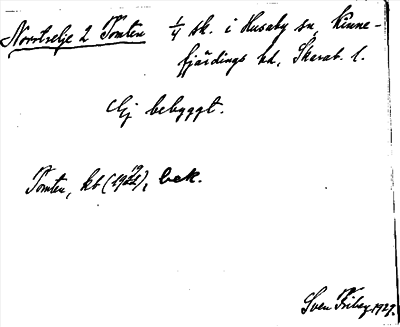 Norrtselje 2 Tomten 1/4 sk. i Husaby sn, Kinne-
fjärdings hd, Skarab. l.
Ej bebyggt.
Tomten, kb (1922), bek.
Sven Friberg 1927.